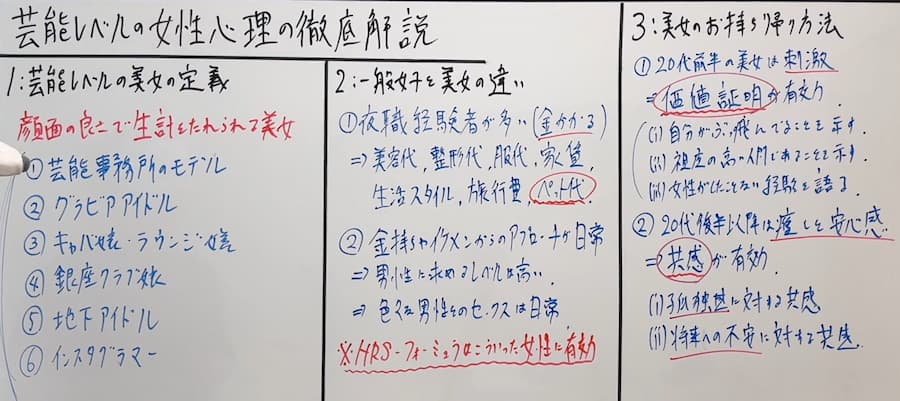 芸能レベルの女性心理の徹底解説
1:芸能レベルの美女の定義
顔面の良さで生計をたれられる美女
①芸能事務所のモデル
②グラビアアイドル
③キャバ嬢・ラウンジ嬢
④銀座クラブ嬢
⑤地下アイドル
⑥インスタグラマー
2:一般女子と美女の違い
①夜職経験者が多い(金かかる)
⇒美容代,整形代,服代,家賃
生活スタイル,旅行費,ペット代
②金持ちやイケメンからのアプローチが日常
⇒男性に求めるレベルは高い
⇒色々な男性とのセックスは日常
※:HRS-フォーミュラはこういった女性に有効
3:美女のお持ち帰り方法
①20代前半の美女は刺激
⇒価値証明が有効
(i)自分がぶっ飛んでることを示す
(ii)程度の高い人間であることを示す
(iii)女性がしたことない経験を語る
②20代後半以降は癒しと安心感
⇒共感が有効
(i)孤独感に対する共感
(ii)将来への不安に対する共感